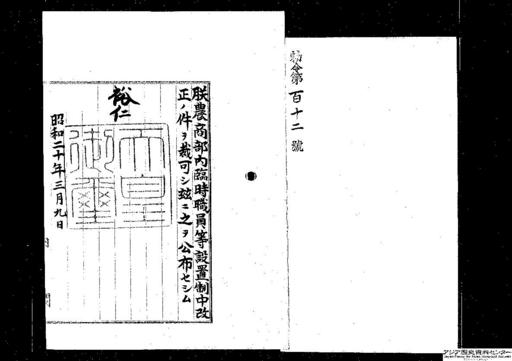 勅令第百十二號
朕農商部內臨時職員等設置制中改
正ノ件ヲ裁可シ茲ニ之ヲ公布セシム
裕仁
天皇御璽
昭和二十年三月九日
内 閣
アジア歴史資料センター